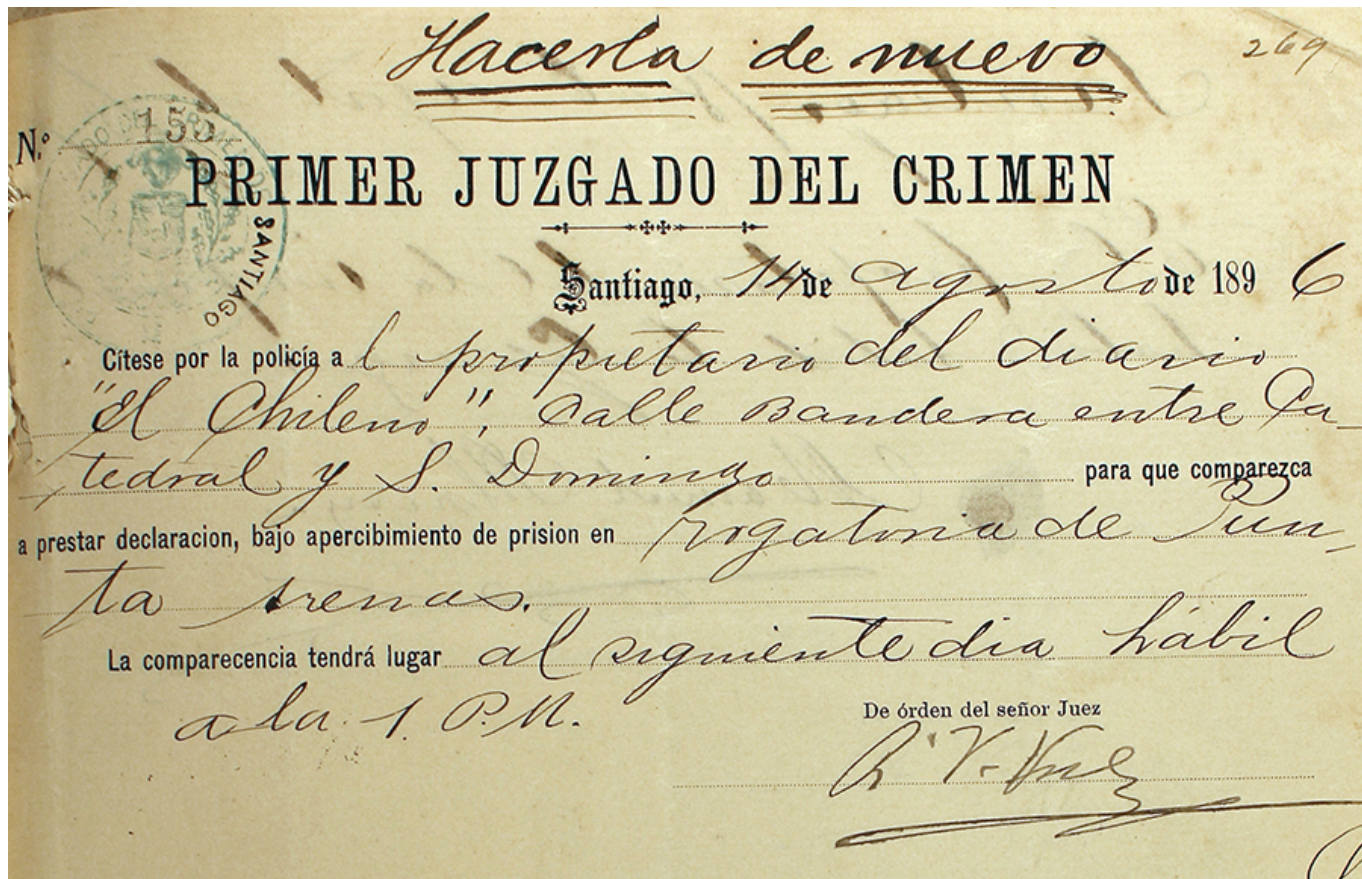 Hacerla de nuevo
269
N.º 155
PRIMER JUZGADO DEL CRIMEN
SANTIAGO
Santiago, 14 de agosto de 1896
Cítese por la policía a l propietario del diario
"El Chileno", Calle Bandera entre Ca-
tedral y S. Domingo para que comparezca
a prestar declaracion, bajo apercibimiento de prision en rogatoria de Pun-
ta Arenas.
La comparecencia tendrá lugar al siguiente dia hábil
a la 1. P.M.
De órden del señor Juez